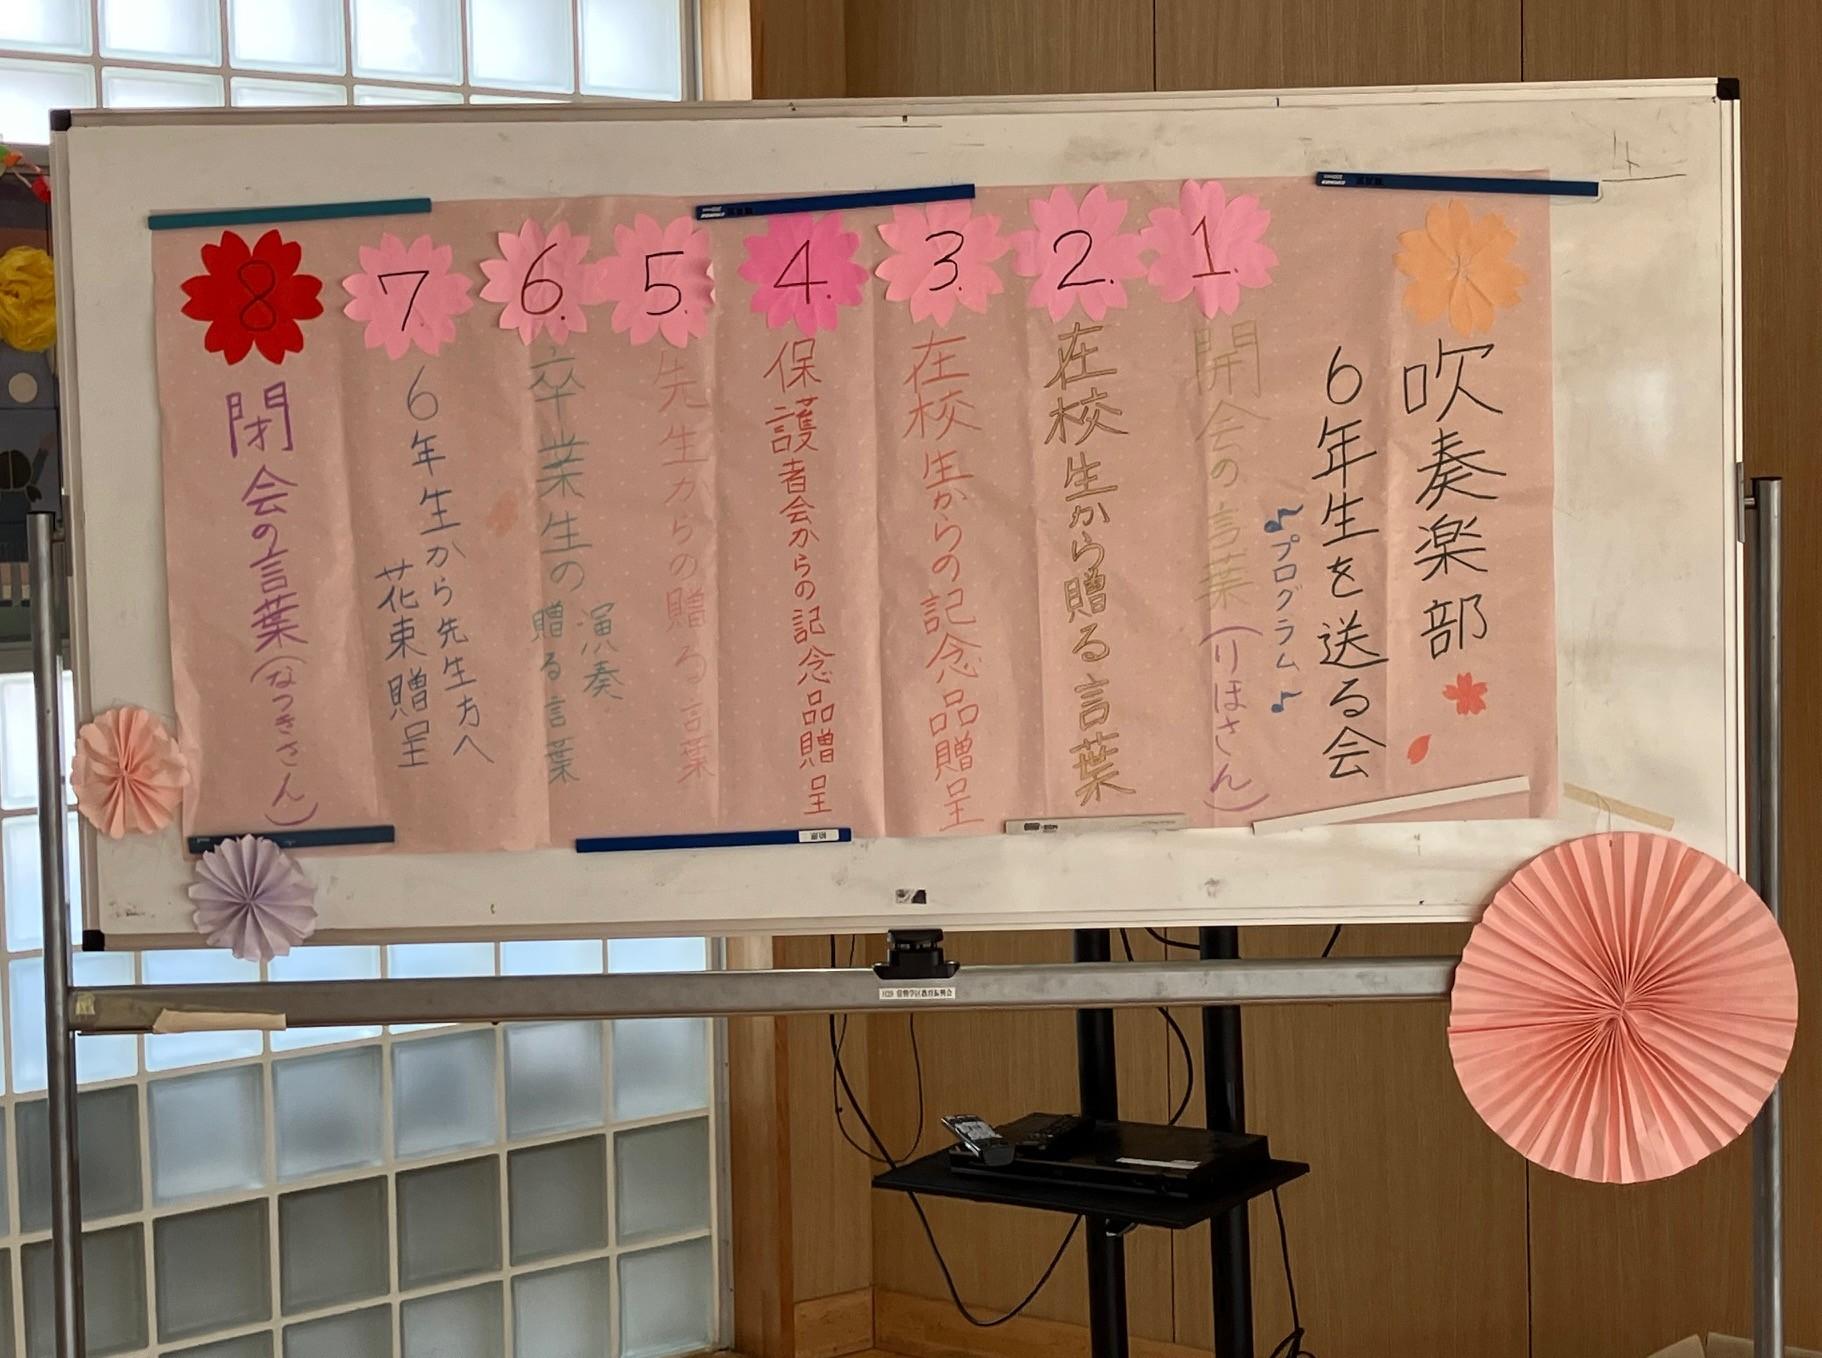 吹奏楽部
6年生を送る会
♪プログラム♪
1. 開会の言葉(りほさん)
2. 在校生から贈る言葉
3. 在校生からの記念品贈呈
4. 保護者会からの記念品贈呈
5. 先生からの贈る言葉
6. 卒業生の演奏
贈る言葉
7 6年生から先生方へ
花束贈呈
8 閉会の言葉(なつきさん)